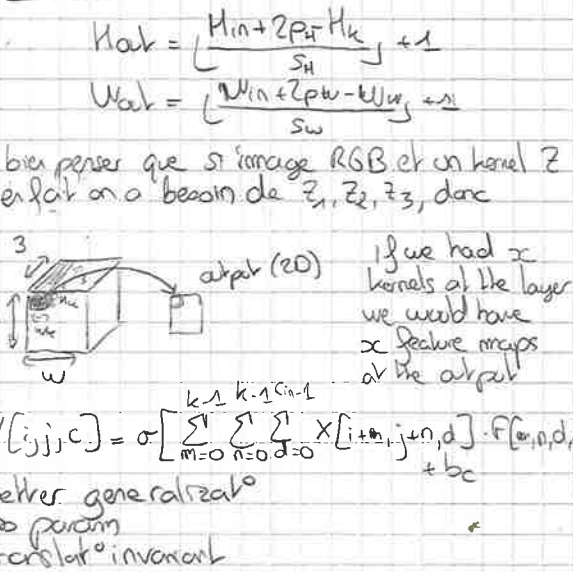 Hout = ⌊ (Hin + 2pH - Hk) / SH ⌋ + 1
Wout = ⌊ (Win + 2pW - WW) / SW ⌋ + 1
bien penser que si image RGB et un kernel Z
en fait on a besoin de Z1, Z2, Z3, donc
3
output (2D)
W
If we had x
kernels at the layer
we would have
x feature maps
at the output
[i,j,c] = σ[ Σ_{m=0}^{k-1} Σ_{n=0}^{k-1} Σ_{d=0}^{Cin-1} X[i+m, j+n, d] · F[m,n,d,
+ bc
etter generalizat°
param
translat° invariant